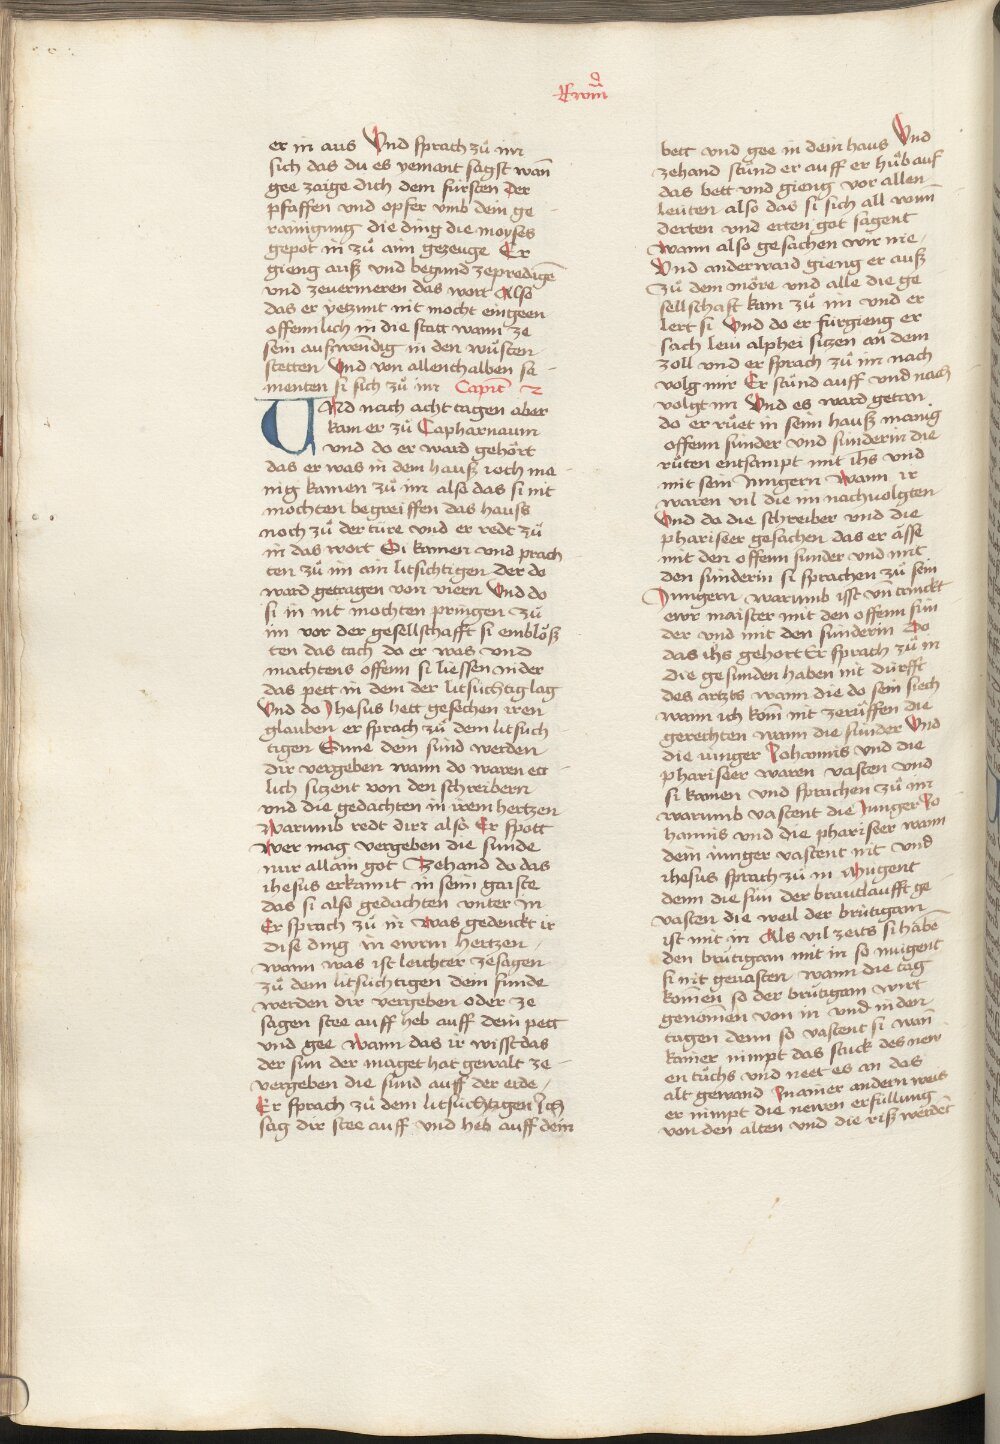 er in aus Vnd sprach zů im
sich das du es yemant sagst wan̄
gee zaige dich dem fürsten Der
pfaffen vnd opfer vmb dein ge
rainigung die ding die moyses
gepot in zů aim gezeuge Er
gieng auß vnd begund zepredigē
vnd zeuermeren das wort Also
das er yeczunt nit mocht eingeen
offennlich in die statt wann ze
sein auswendig in den wůsten
stetten Vnd von allenthalben sa
menten si sich zů im Capitl̄ 2
VNd nach acht tagen aber
kam er zů Capharnaum
vnd do er ward gehört
das er was in dem hauß ioch ma
nig kamen zů im also das si nit
mochten begreiffen das hauss
noch zů der türe vnd er redt zů
in das wort Si kamen vnd prach
ten zů im ain litsichtigen der do
ward getragen von viern Vnd do
si in nit mochten pringen zů
im vor der gesellschafft si emblöß
ten das tach do er was vnd
machtens offenn si liessen nider
das pett in dem der litsüchtig lag
Vnd do Jhesus hett gesechen iren
glauben er sprach zů dem litsuch
tigen Sune dein sünd werden
dir vergeben wann do waren ett
lich siczent von den schreibern
vnd die gedachten in irem hertzen
Warumb redt dirr also Er spott
Wer mag vergeben die sünde
nur allain got Zehand do das
ihesus erkannt in seim gaiste
das si also gedachten vnter in
Er sprach zů in Was gedenckt ir
dise ding in ewrm hertzen
wann was ist leichter zesagen
zů dem litsüchtigen dein sunde
werden dir vergeben oder ze
sagen stee auff heb auff dein pett
vnd gee Wann das ir wisst das
der sun der maget hat gewalt ze
vergeben die sünd auff der erde
Er sprach zů dem litsüchtigen Ich
sag dir stee auff vnd heb auff dein
bett vnd gee in dein haus Vnd
zehand stůnd er auff er hůb auf
das bett vnd gieng vor allen
leüten also das si sich all wun
derten vnd erten got sagent
Wann also gesachen wir nie
Vnd anderward gieng er auß
zů dem möre vnd alle die ge
sellschaft kam zů im vnd er
lert si Vnd do er fürgieng er
sach leui alphei siczen an dem
zoll vnd er sprach zů im nach
volg mir Er stůnd auff vnd nach
volgt im Vnd es ward getan
do er růet in seim hauß manig
offenn sünder vnd sünderin die
růten entsampt mit ih̄s vnd
mit sein Jüngern Wann ir
waren vil die im nachuolgten
Vnd do die schreiber vnd die
phariseer gesachen das er ässe
mit den offenn sunder vnd mit
den sünderin si sprachen zů sein
Jüngern warumb isst vn̄ trinckt
ewr maister mit den offenn sün
der vnd mit den sünderin Do
das ih̄s gehort Er sprach zů in
die gesunden haben nit dürfft
des arczts wann die do sein siech
wann ich kom̄ nit zerůffen die
gerechten wann die sünder Vnd
die iünger Johannis vnd die
phariseer waren vasten vnd
si kamen vnd sprachen zů im
warumb vastent die Junger Jo
hannis vnd die phariseer wann
dein iunger vastent nit vnd
ihesus sprach zů in Mugent
denn die sün der brautlaufft ge
vasten die weil der brütigam
ist mit in Als vil zeits si habē
den brütigam mit in so mügent
si nit geuasten wann die tag
kom̄en so der brütigam wirt
genom̄en von in vnd in den
tagen denn so vastent si wan̄
kainer nimpt das stuck des new
en tůchs vnd neet es an das
alt gewand In ainer andern weis
er nimpt die newen erfüllung
von den alten vnd die riß werdēt